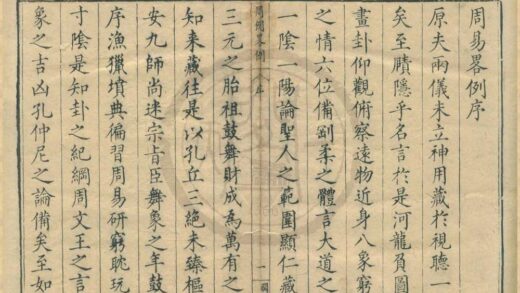 周易畧例序
原夫兩儀未立神用藏於視聽一
矣至賾隱乎名言於是河龍負圖
畫卦仰觀俯察遠物近身八象窮
之情六位備剛柔之體言大道之
一陰一陽論聖人之範圍顯仁藏
周易畧例 序 一
三元之胎祖鼓舞財成為萬有之
知来藏往是以孔丘三絶未臻樞
安九師尚迷宗旨臣舞象之年鼓
序漁獵墳典徧習周易研窮耽玩
寸陰是知卦之紀綱周文王之言
象之吉凶孔仲尼之論備矣至如